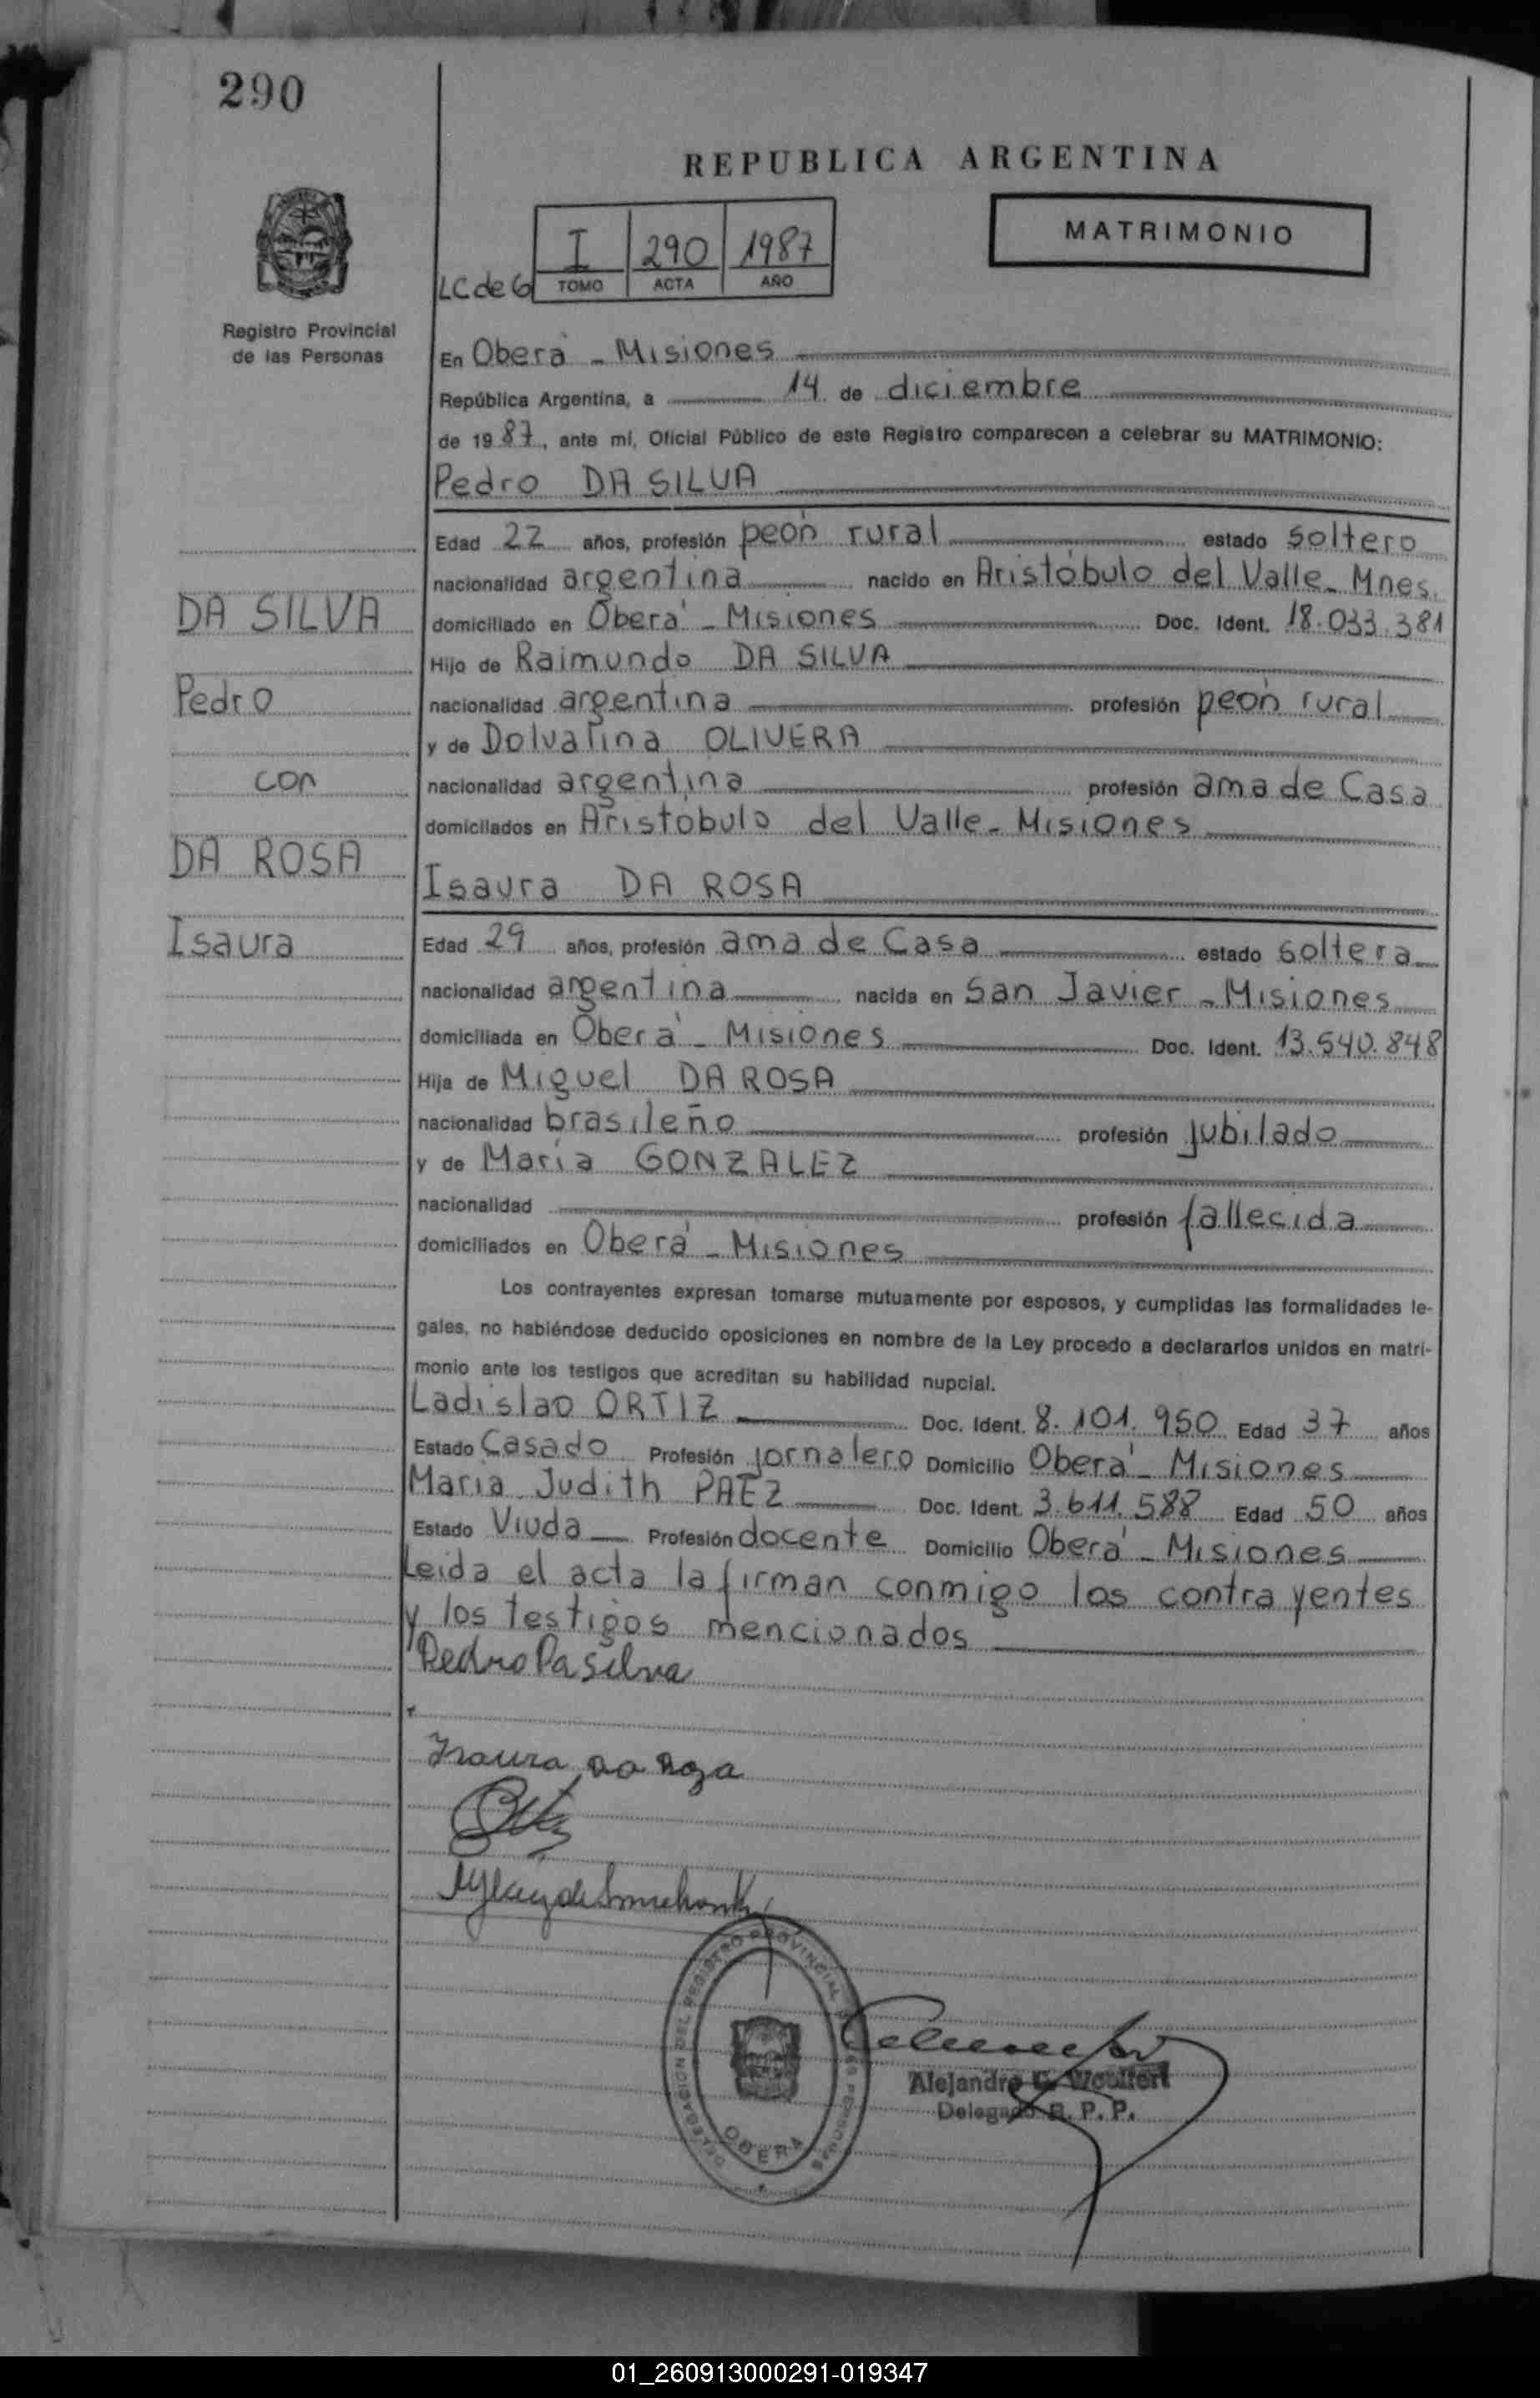 290
REPUBLICA ARGENTINA
MATRIMONIO
I 290 1987
LC de G TOMO ACTA AÑO
Registro Provincial
de las Personas
En Oberá - Misiones
República Argentina, a 14 de diciembre
de 1987, ante mí, Oficial Público de este Registro comparecen a celebrar su MATRIMONIO:
Pedro DA SILVA
Edad 22 años, profesión peón rural estado soltero
nacionalidad argentina nacido en Aristóbulo del Valle - Mnes.
DA SILVA
domiciliado en Oberá - Misiones Doc. Ident. 18.033.381
Hijo de Raimundo DA SILVA
Pedro
nacionalidad argentina profesión peón rural
y de Dolvalina OLIVERA
con
nacionalidad argentina profesión ama de Casa
domiciliados en Aristobulo del Valle - Misiones
DA ROSA
Isaura DA ROSA
Isaura
Edad 29 años, profesión ama de Casa estado soltera
nacionalidad argentina nacida en San Javier - Misiones
domiciliada en Oberá - Misiones Doc. Ident. 13.540.848
Hija de Miguel DA ROSA
nacionalidad brasileño profesión jubilado
y de María GONZALEZ
nacionalidad profesión fallecida
domiciliados en Oberá - Misiones
Los contrayentes expresan tomarse mutuamente por esposos, y cumplidas las formalidades le-
gales, no habiéndose deducido oposiciones en nombre de la Ley procedo a declararlos unidos en matri-
monio ante los testigos que acreditan su habilidad nupcial.
Ladislao ORTIZ Doc. Ident. 8.101.950 Edad 37 años
Estado Casado Profesión jornalero Domicilio Oberá - Misiones
María Judith PAEZ Doc. Ident. 3.611.588 Edad 50 años
Estado Viuda Profesión docente Domicilio Oberá - Misiones
Leida el acta la firman conmigo los contrayentes
y los testigos mencionados
Pedro Da Silva
Isaura Da Roza
DELEGACION DEL REGISTRO PROVINCIAL DE LAS PERSONAS
OBERA
Alejandro
Delegado R. P. P.
01_260913000291-019347